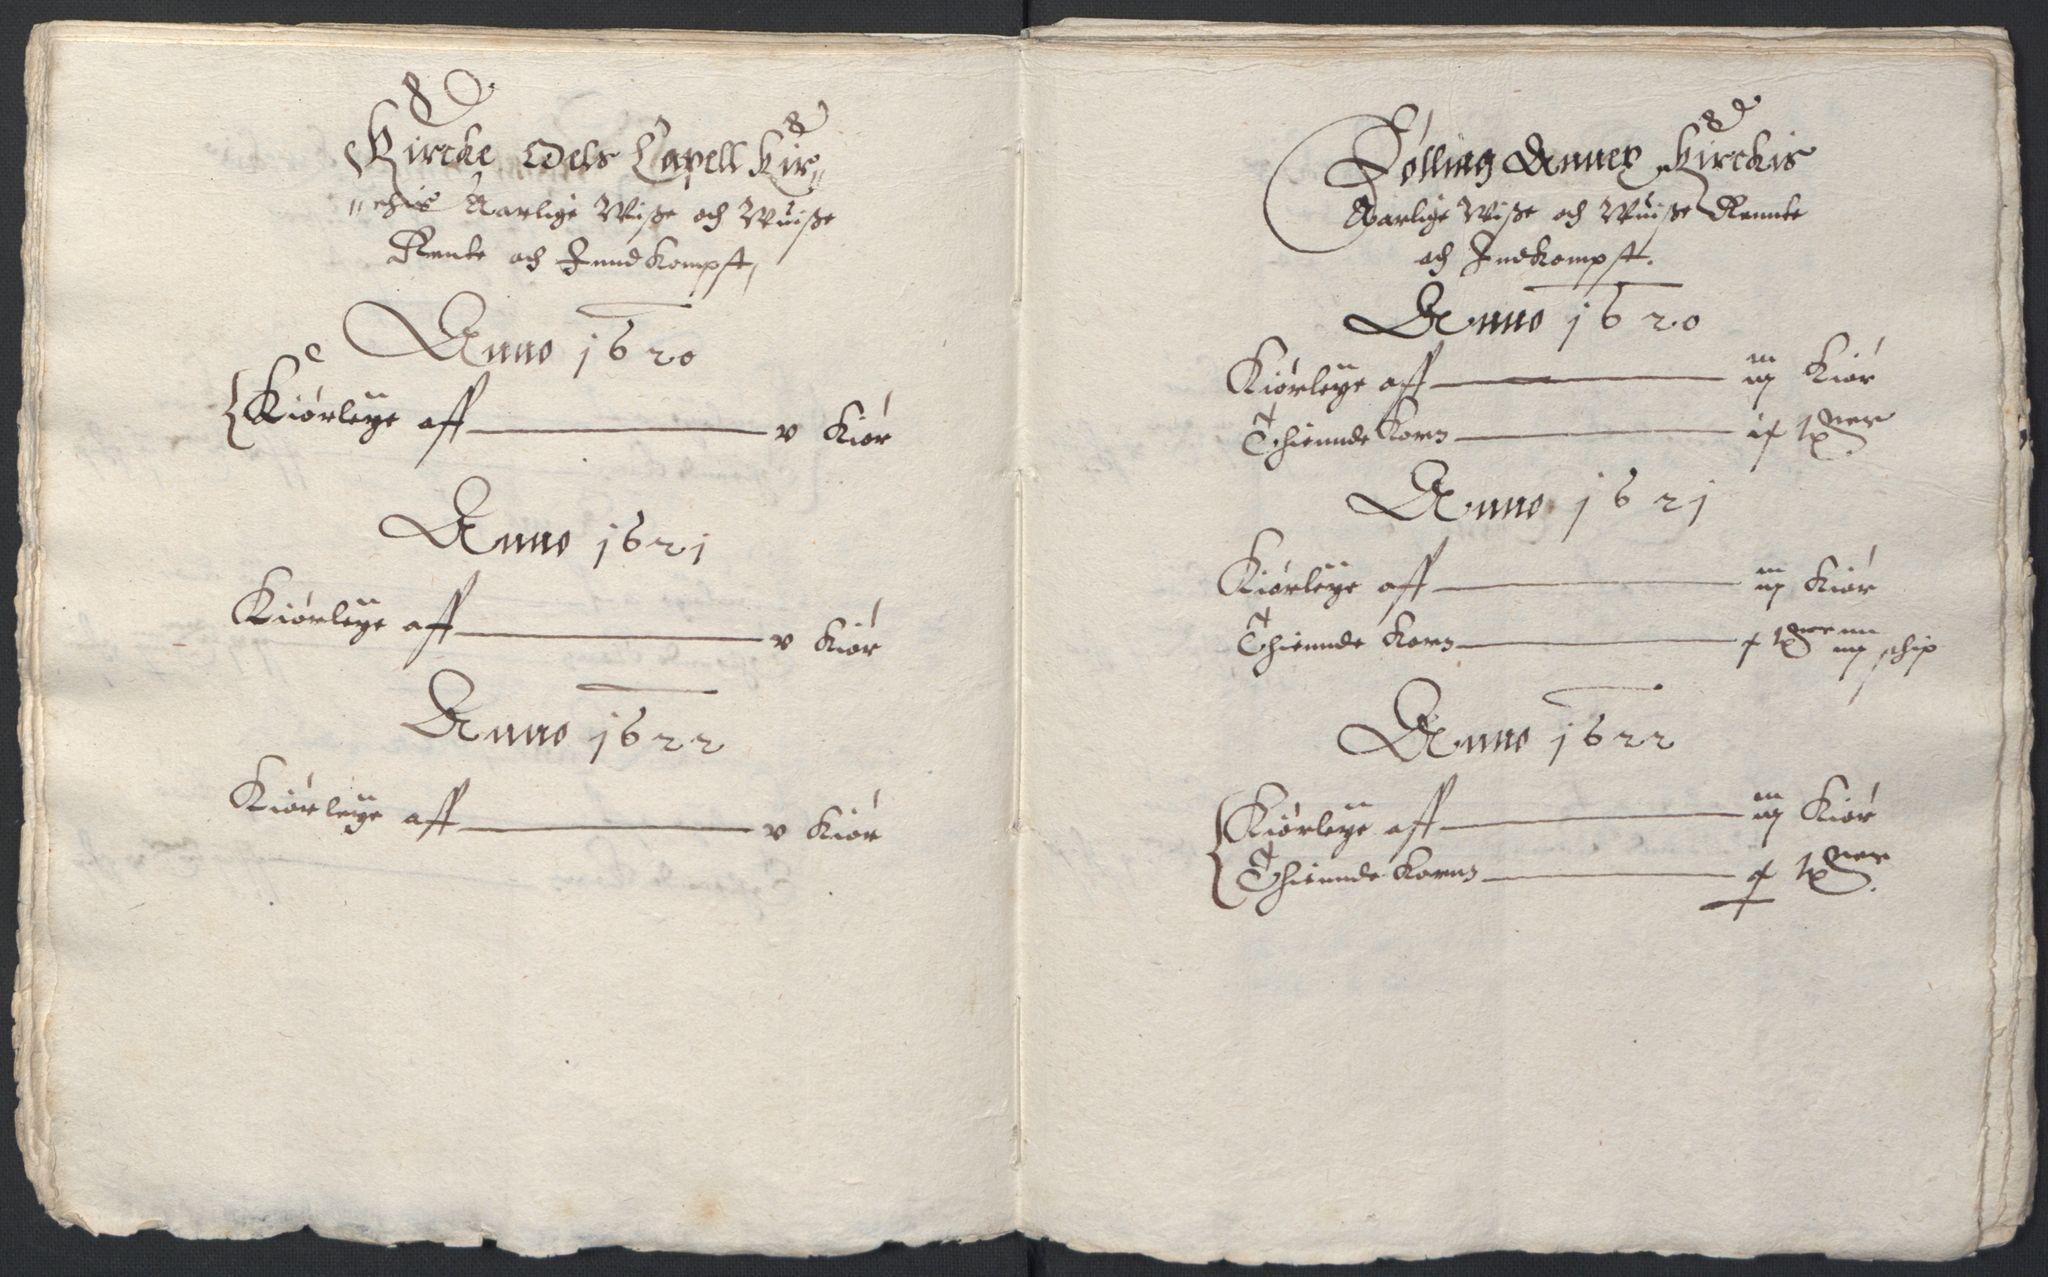 Kircke Oels Capell Kir„
„chis Aarlige Wiße och Wuiße
Rente och Inndkompst,
Anno 1620
Kiørleÿe aff v Kiør
Anno 1621
Kiørleÿe aff v Kiør
Anno 1622
Kiørleÿe aff v Kiør
Solling Annex Kirckis
Aarlige Wiße och Wuiße Rennte
och Indkompst.
Anno 1620
Kiørleÿe aff iiij Kiør
Thiennde Korn
Anno 1621
Kiørleÿe aff iiij Kiør
Thiennde Korn schip
Anno 1622
Kiørleÿe aff iiij Kiør
Thiennde Kornn